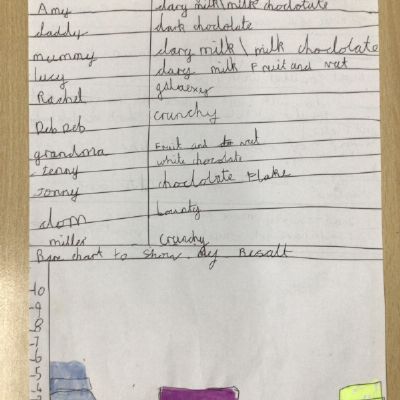 Amy dary milk\milk choclotate
daddy dark choclotate
mummy dary milk \ milk choclotate
lucy dary milk Fruit and nut
Rachel galaexy
Deb Deb crunchy
grandma Fruit and nut
Jenny white chocolate
Jonny choclotate Flake
dom bounty
miller crunchy
Bare chart to Show my Resalt
10
9
8
7
6
5
4